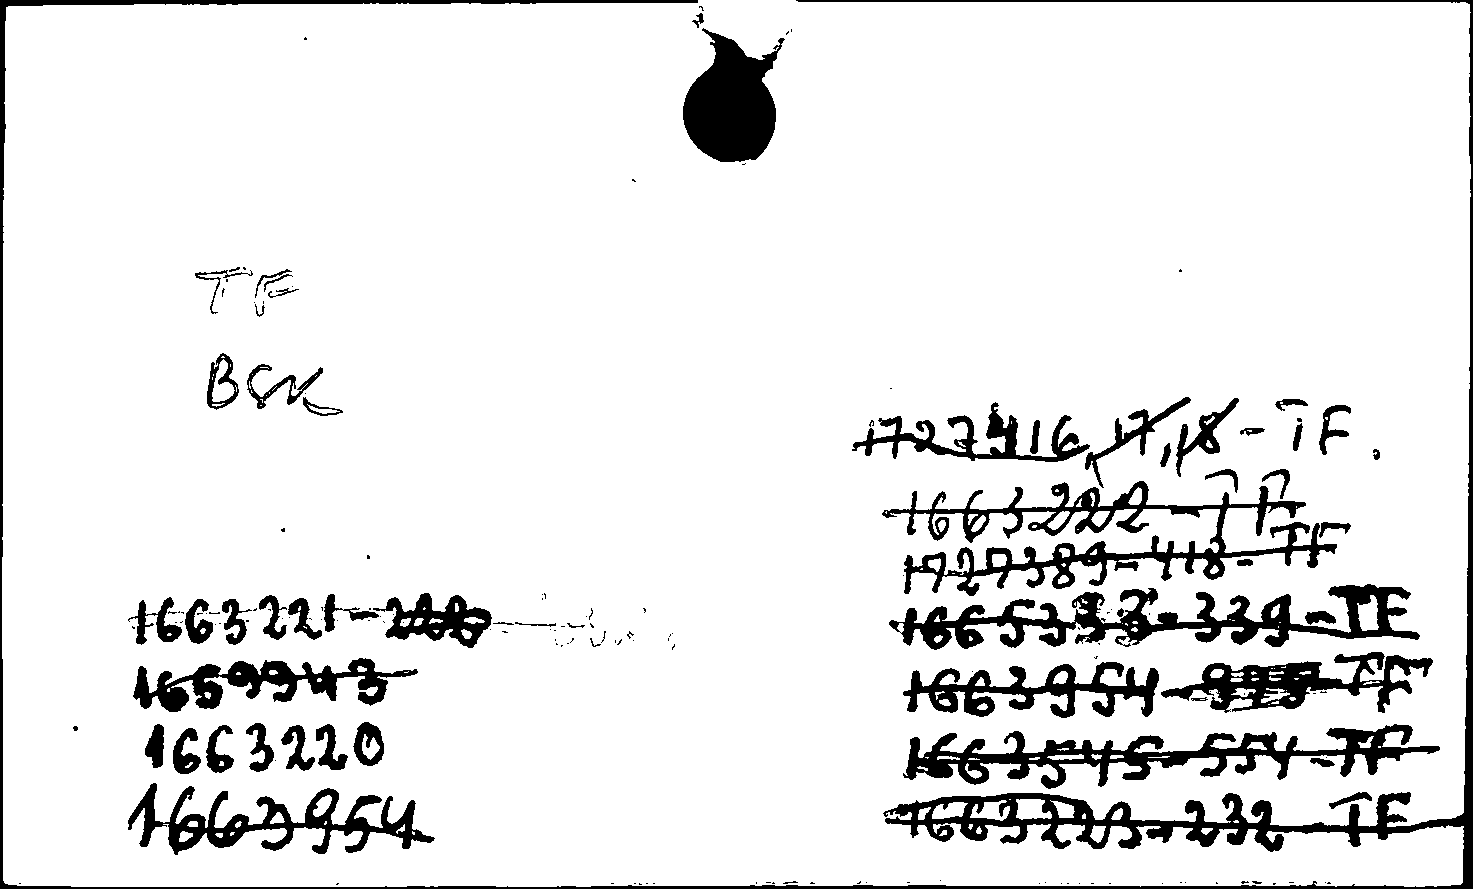 TF
BSK
1663221-222
1659943
1663220
1663954
1727416, 17, 18 - TF.
1663222 - TF
1727389-418- TF
1665333-339-TF
1663954-975-TF
1663545-554-TF
1663223-232-TF